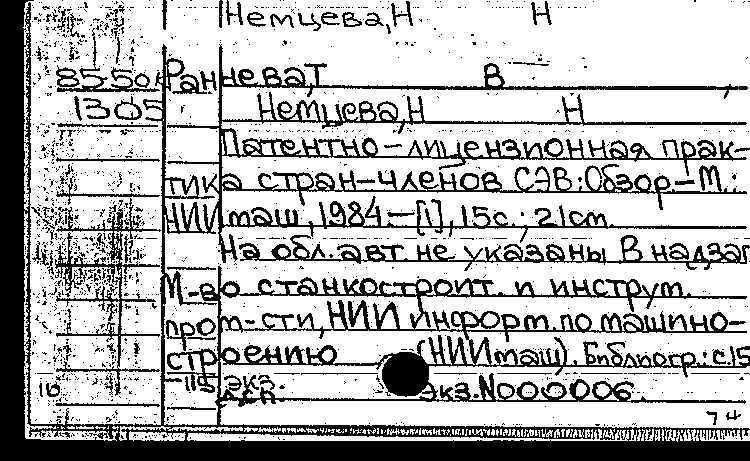 Немцева,Н Н
85-501 Раннева,Т В
1305 Немцева,Н Н
Патентно-лицензионная прак-
тика стран-членов СЭВ:Обзор.-М.:
НИИмаш,1984.-[1],15с.;21см.
На обл.авт.не указаны В надзаг
М-во станкостроит. и инструм.
пром-сти,НИИ информ.по машино-
строению (НИИмаш). Библиогр.:с15
-115 экз.
16 экз.N000006.
74